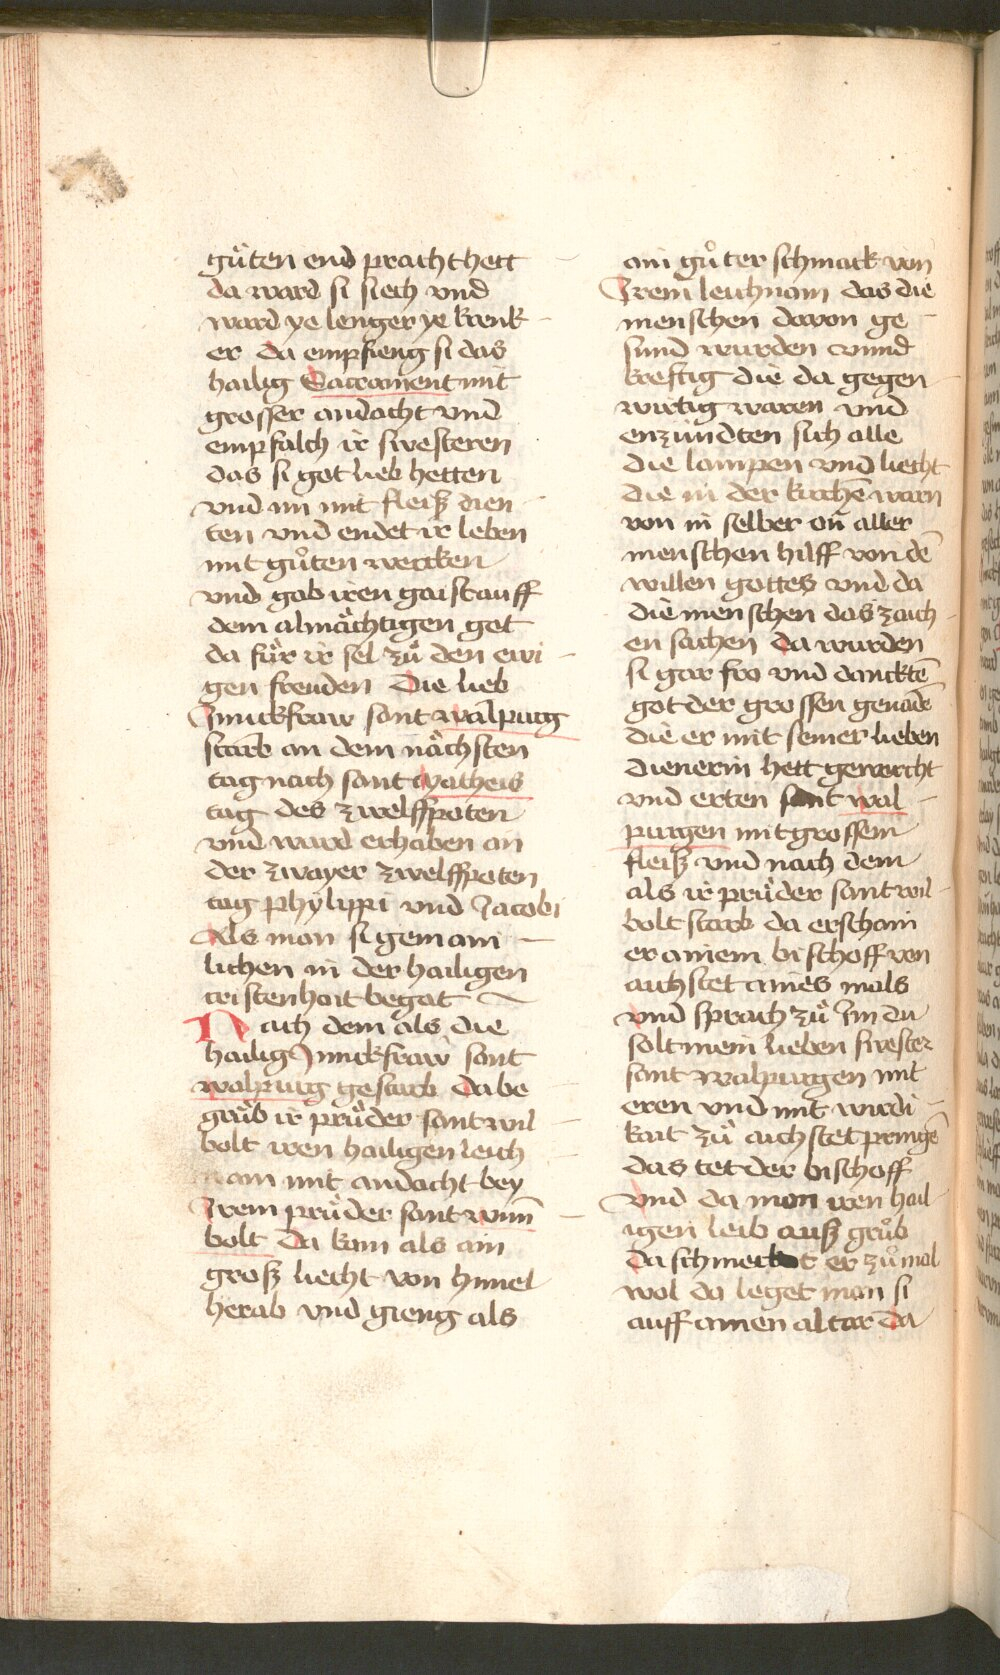 gůten end pracht hett
da ward si siech vnd
ward ye lenger ye krenk
er da empfieng si das
hailig Sacrament mit
grosser andacht vnd
empfalch ir swesteren
das si got lieb hetten
vnd im mit fleiß dien
ten vnd endet ir leben
mit gůten wercken
vnd gab iren gaist auff
dem almächtigen got
da für ir sel zů den ewi
gen freuden Die lieb
Junckfraw sant walpurg
starb an dem nächsten
tag nach sant Matheis
tag des zwelffpoten
vnd ward erhaben an
der zwayer zwelffpoten
tag phylippi vnd Jacobi
Als man si gemain
lichen in der hailigen
cristenhait begat
Nach dem als die
hailig Junckfraw sant
walpurg gestarb da be
grůb ir průder sant wil
bolt iren hailigen leich
nam mit andacht bey
Irem průder sant wuni
bolt Da kam als ain
groß liecht von himel
herab vnd gieng als
ain gůter schmack von
Irem leichnam das die
menschen davon ge
sund wurden vnnd
kreftig die da gegen
wirtig waren vnd
enzündten sich alle
die lampen vnd liecht
die in der kirchē warn
von in selber on aller
menschen hilff von dē
willen gottes vnd da
die menschen das zaich
en sachen da wurden
si gar fro vnd dancktē
got der grossen genadē
die er mit seiner lieben
dienerin hett gewercht
vnd erten sant wal
purgen mit grossem
fleiß vnd nach dem
als ir průder sant wil
bolt starb da erschain
er ainem bischoff von
aichstet aines mals
vnd sprach zů Im du
solt mein lieben swester
sant walpurgen mit
eren vnd mit wirdi
kait zů aichstet pringē
das tet der bischoff
vnd da man iren hail
igen leib auß grůb
da schmecket er zůmal
wol da leget man si
auff ainen altar da